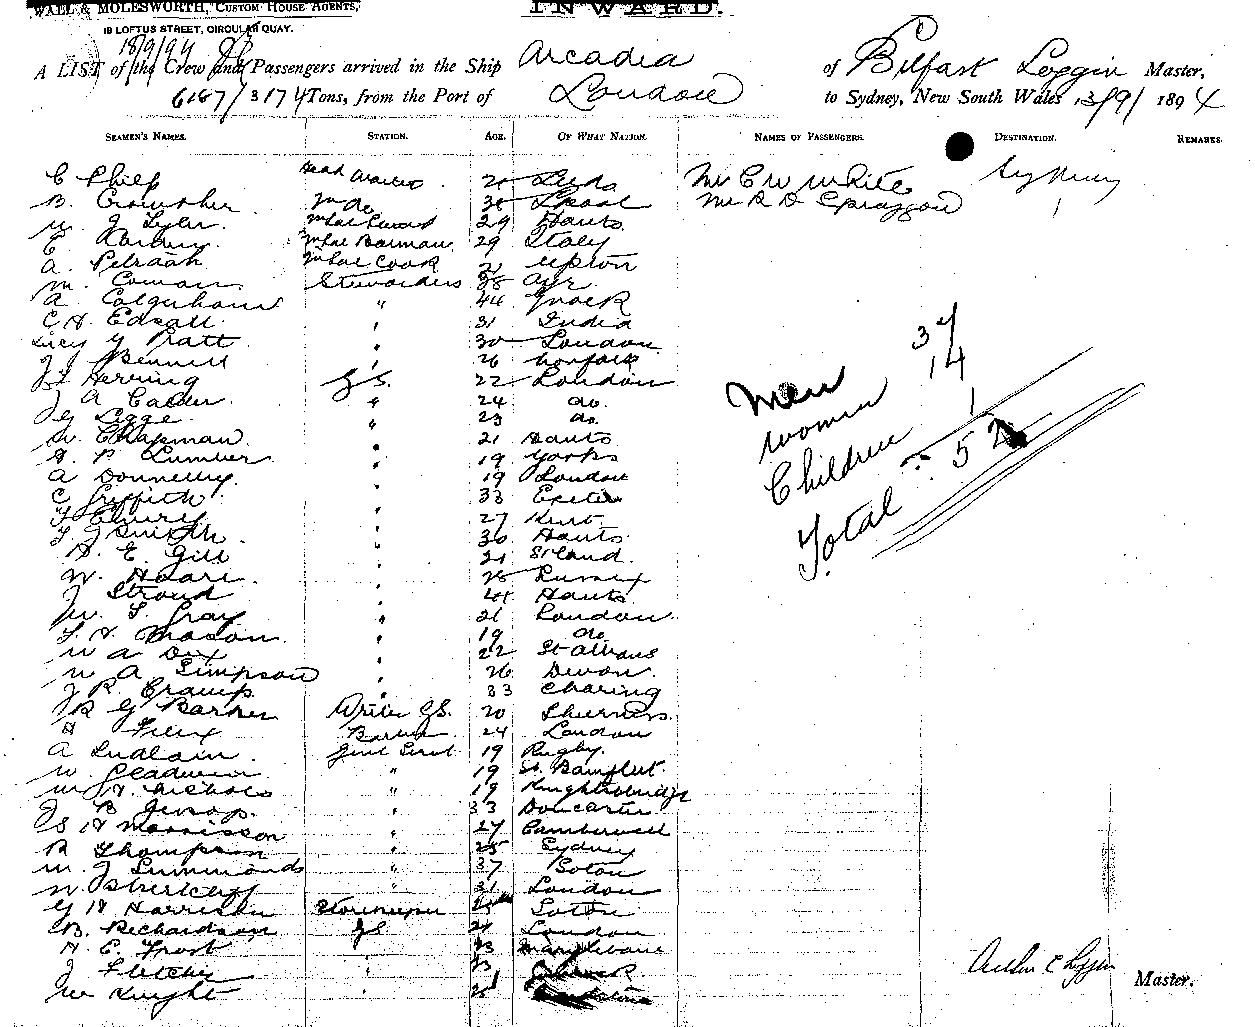 WALL & MOLESWORTH, CUSTOM HOUSE AGENTS,
INWARD.
18 LOFTUS STREET, CIRCULAR QUAY.
18/9/94
A LIST of the Crew and Passengers arrived in the Ship Arcadia of Belfast Loggin Master,
6187/3174 Tons, from the Port of London to Sydney, New South Wales 13/9/1894
SEAMEN'S NAMES. STATION. AGE. OF WHAT NATION. NAMES OF PASSENGERS. DESTINATION. REMARKS.
C Philp Head Waiter Leeds Mr C W White Sydney
B. Crowther 30 Lpool Mr R D Spraggon
W J Tyler 29 Hants
E 2nd Sal Barman 29 Italy
A. Cook 21 Upton
M. Cowan Stewardess 38 Ayr
A Colquhoun " 44
C H. Edsall " 31 India
Lucy G Pratt " 30 London
J Bennett " 26 Norfolk
J T Herring G.S. 22 London
J A Calder " 24 do.
J G Legge " 23 do.
W. Chapman " 21 Hants
H. P Lumber " 19 Yorks
A Donnelly " 19 London
C Griffith " 33 Exeter
T Emery " 27 Kent
T J Smith " 30 Hants
H. E. Gill " 21
W. Hoare "
J Stroud " Hants
W. T. Gray " 21 London
T. H. Mason " 19 do
W A Dix " 22 St Albans
W A Simpson " 26 Devon
J R. Cramp " 33 Charing
R G Barker Writer G.S. 20 Sheerness
H Felix Barber 24 London
A Ludlain Genl Servt 19 Rugby.
W. Gleadwin " 19 St. Bamfleet.
W H. Nichols " 19 Knightsbridge
J B Jessop. " 33 Doncaster
J S H Morrisson " 27 Camberwell
R Thompson " 25 Sydney
W. J Simmonds " 37 Soton
W " 31 London
G H Harrison Storekeeper Soton
B. Richardson GS 21 London
H. E Frost " 23 Marylebone
J Fletcher "
W Knight "
Men 37
Women 14
Children 1
Total 52
Arthur C Loggin Master.